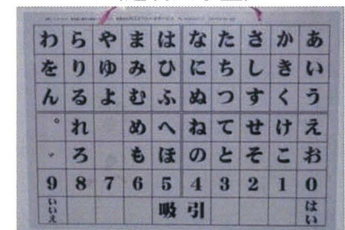 わらやまはなたさかあ
をりゆみひにちしきい
んるよむふぬつすくう
。れ めへねてせけえ
゛ろ もほのとそこお
9 8 7 6 5 4 3 2 1 0
いいえ 吸引 はい